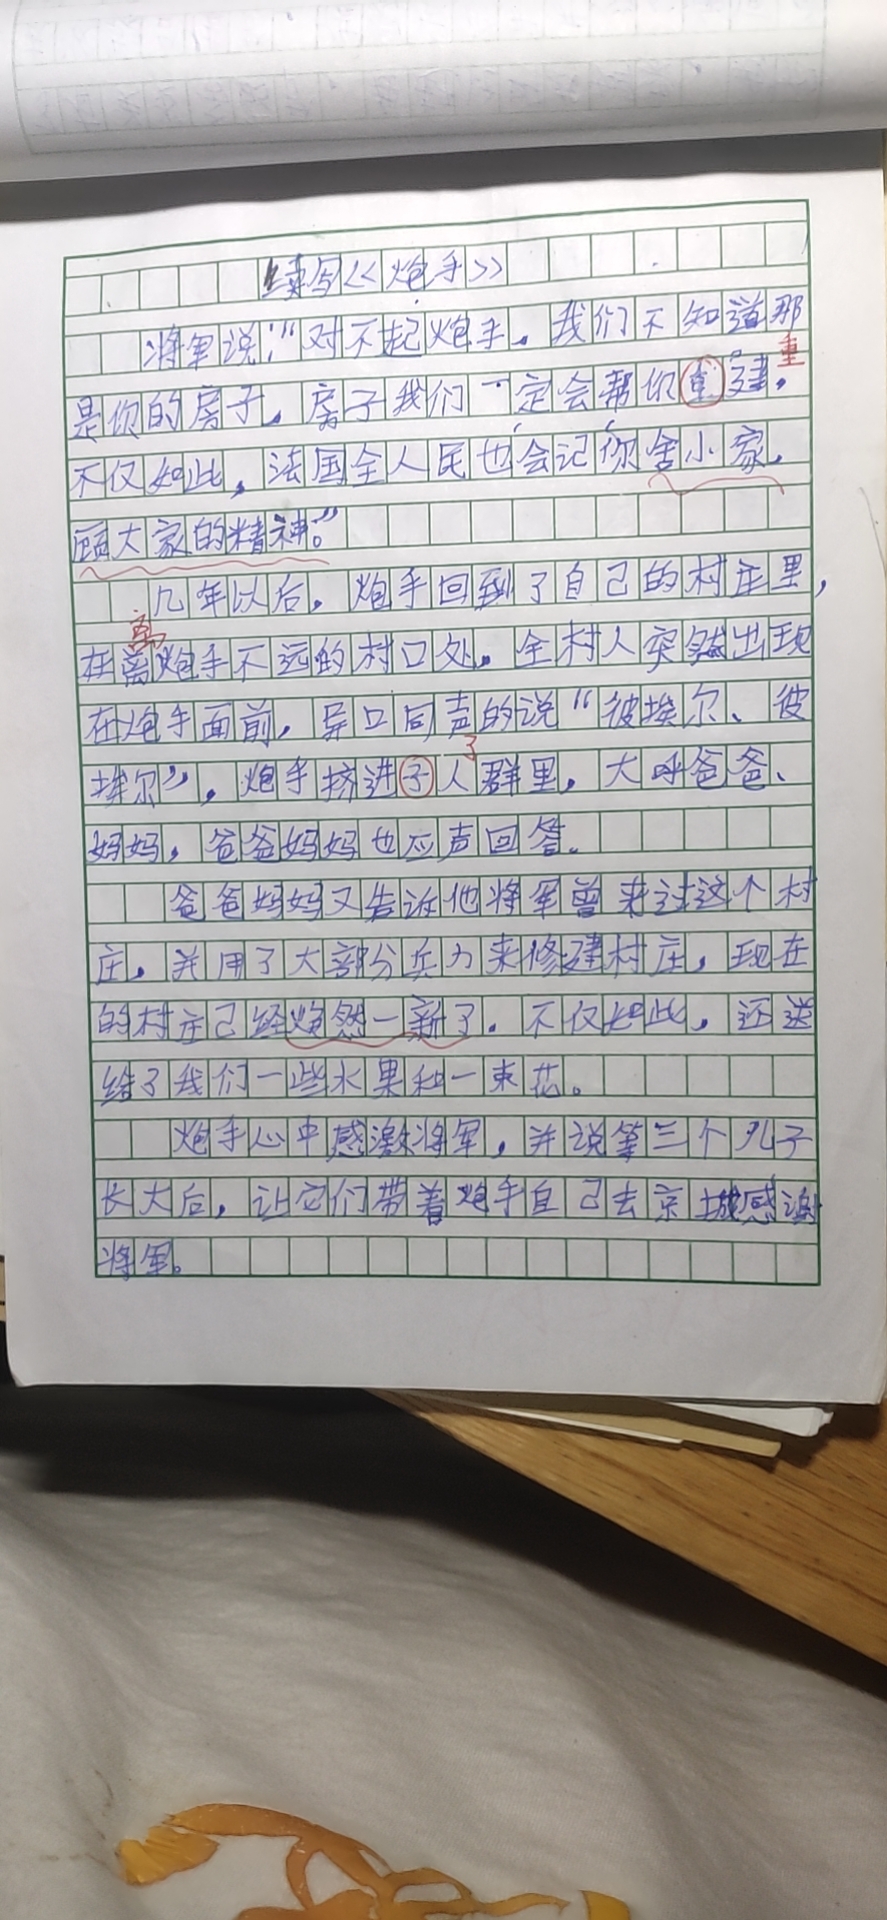 续写《炮手》
将军说:“对不起炮手。我们不知道那
重
是你的房子。房子我们一定会帮你重建,
不仅如此,法国全人民也会记你舍小家,
顾大家的精神。”
几年以后,炮手回到了自己的村庄里,
离
在离炮手不远的村口处。全村人突然出现
在炮手面前,异口同声的说“彼埃尔、彼
了
埃尔”,炮手挤进了人群里,大呼爸爸、
妈妈,爸爸妈妈也应声回答。
爸爸妈妈又告诉他将军曾来过这个村
庄,并用了大部分兵力来修建村庄,现在
的村庄己经焕然一新了。不仅如此,还送
给了我们一些水果和一束花。
炮手心中感激将军,并说等三个儿子
长大后,让它们带着炮手自己去京城感谢
将军。